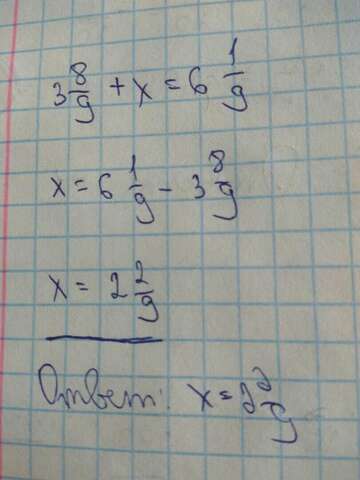 3 8/9 + x = 6 1/9
x = 6 1/9 - 3 8/9
x = 2 2/9
Ответ: x = 2 2/9